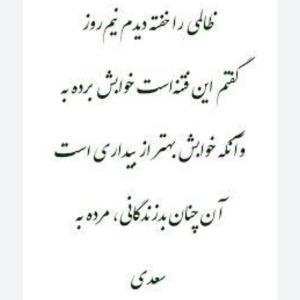 ظالمی را خفته دیدم نیم روز
گفتم این فتنه است خوابش برده به
وآنکه خوابش بهتر از بیداری است
آن چنان بدزندگانی، مرده به
سعدی